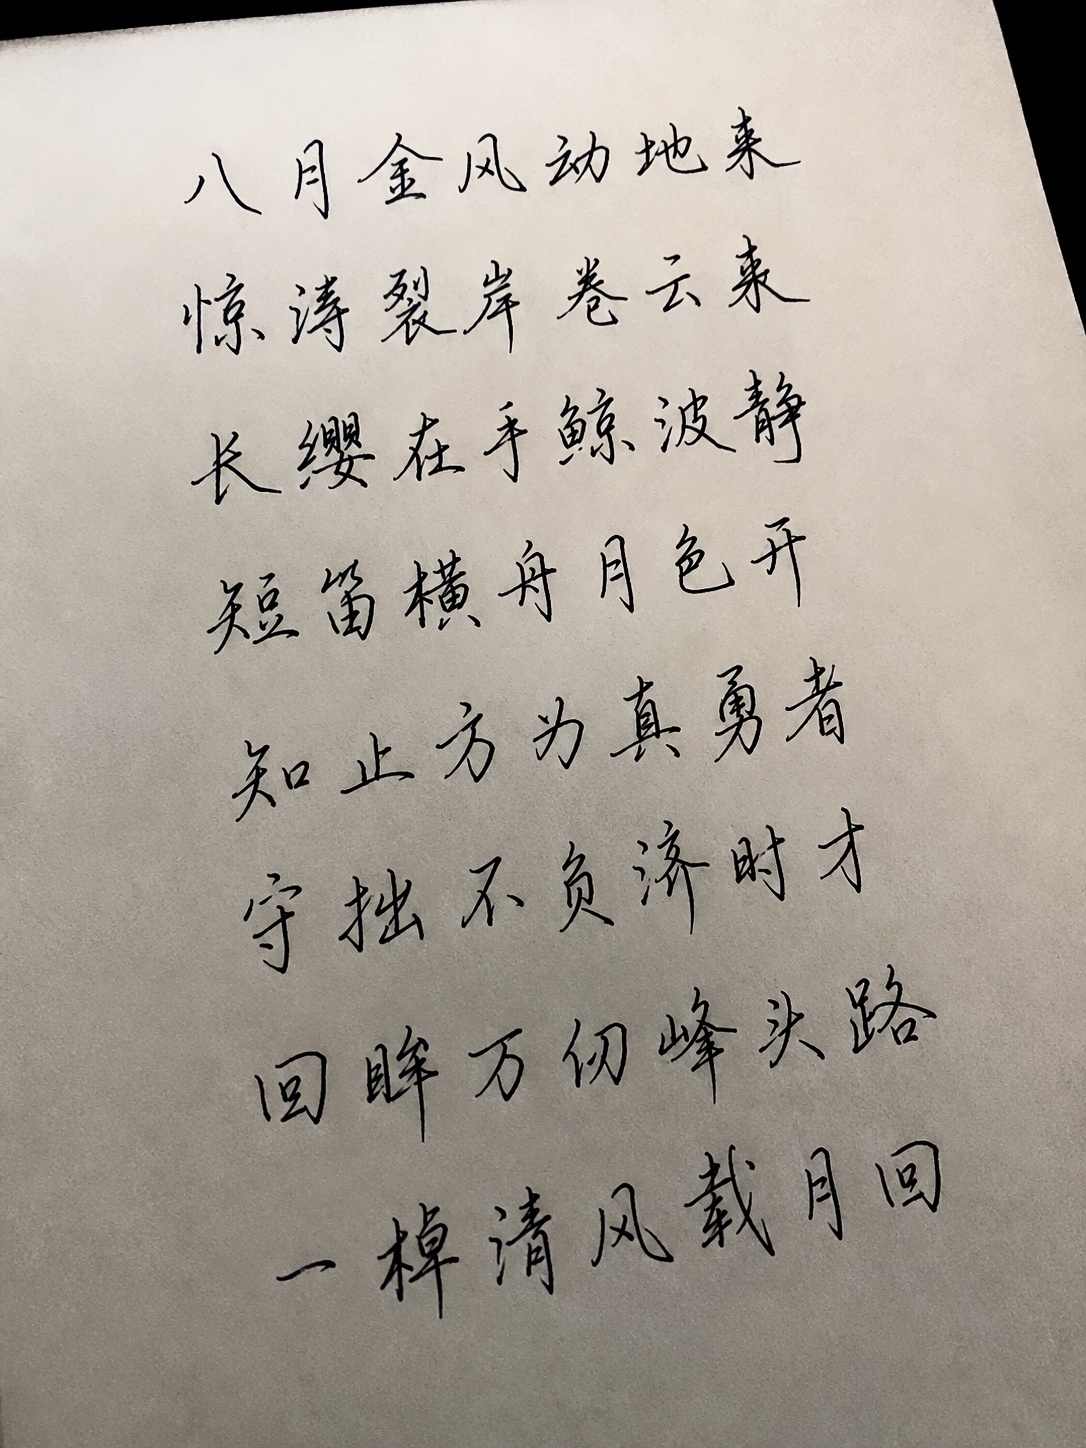 八月金风动地来
惊涛裂岸卷云来
长缨在手鲸波静
短笛横舟月色开
知止方为真勇者
守拙不负济时才
回眸万仞峰头路
一棹清风载月回